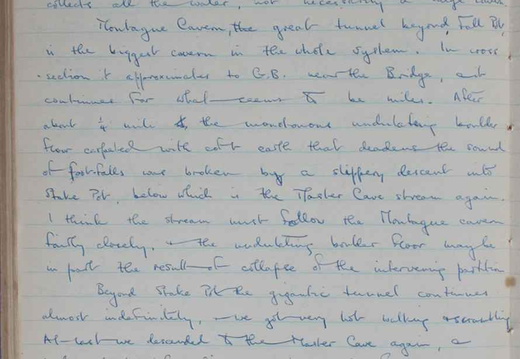 collects all the water, not necessarily a large
Montague Cavern, the great tunnel beyond Fall Pot,
is the biggest cavern in the whole system. In cross
-section it approximates to G.B. near the Bridge, and
continues for what seems to be miles. After
about ¼ mile the monotonous undulating boulder
floor carpeted with soft earth that deadens the sound
of foot-falls was broken by a slippery descent into
Stake Pot, below which is the Master Cave stream again.
I think the stream must follow the Montague cavern
fairly closely, & the undulating boulder floor may be
in part the result of collapse of the intervening partition
Beyond Stake Pot the gigantic tunnel continues
almost indefinitely, - we got very hot walking & scrambling
At last we descended to the Master Cave again, a